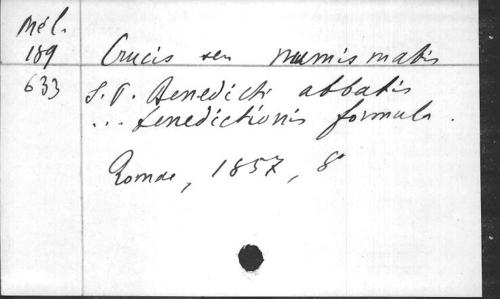 Mél.
189 Crucis seu numismatis
633 S. P. Benedicti abbatis
... benedictionis formula.
Romae, 1857, 8°